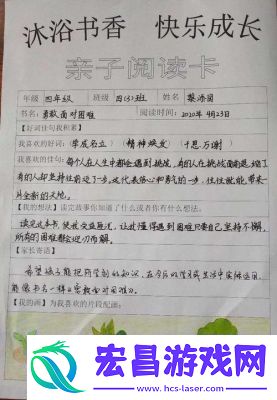 沐浴书香 快乐成长
亲子阅读卡
年级 四年级 班级 四(3)班 姓名
书名: 勇敢面对困难 阅读时间: 2020年4月23日
【好词佳句我积累】
我喜欢的好词:(学成名立)(精神焕发)(千恩万谢)
我喜欢的佳句: 每个人在人生中都会遇到挑战,有的人在挑战面前退缩了
有的人却坚持往前迈了一步。这代表信心和勇气的一步,往往就能带来
片全新的天地。
【我的想法】读完故事你知道了什么或者你有什么想法。
读完这本书,使我受益匪浅,让我懂得遇到困难只要自己坚持不懈,
所有的困难都会迎刃而解。
【家长寄语】
希望孩子能把所学到的知识,在今后的学习或生活中实际运用,
能像书名一样《勇敢面对困难》。
【我的画】为我喜欢的片段配画:
宏昌游戏网
www.hcs-laser.com